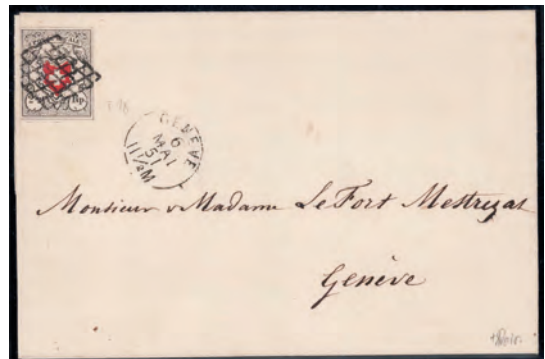 Rp.
GENEVE
6
MAI
51
11½M
Monsieur & Madame LeFort Mestrezat
Genève